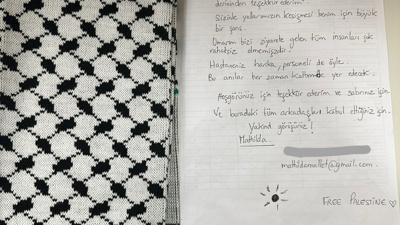 derininden teşekkür ederim
Sizinle yollarımızın kesişmesi benim için büyük
bir şans.
Umarım bizi ziyarete gelen tüm insanları çok
rahatsız etmemişizdir.
Hastaneniz harika, personeli de öyle.
Bu anılar her zaman kalbimde yer edecek.
Hoşgörünüz için teşekkür ederim ve sabrınız için.
Ve buradaki tüm arkadaşları kabul ettiğiniz için.
Yakında görüşürüz!
Mathilda
mathildamallet@gmail.com
FREE PALESTINE